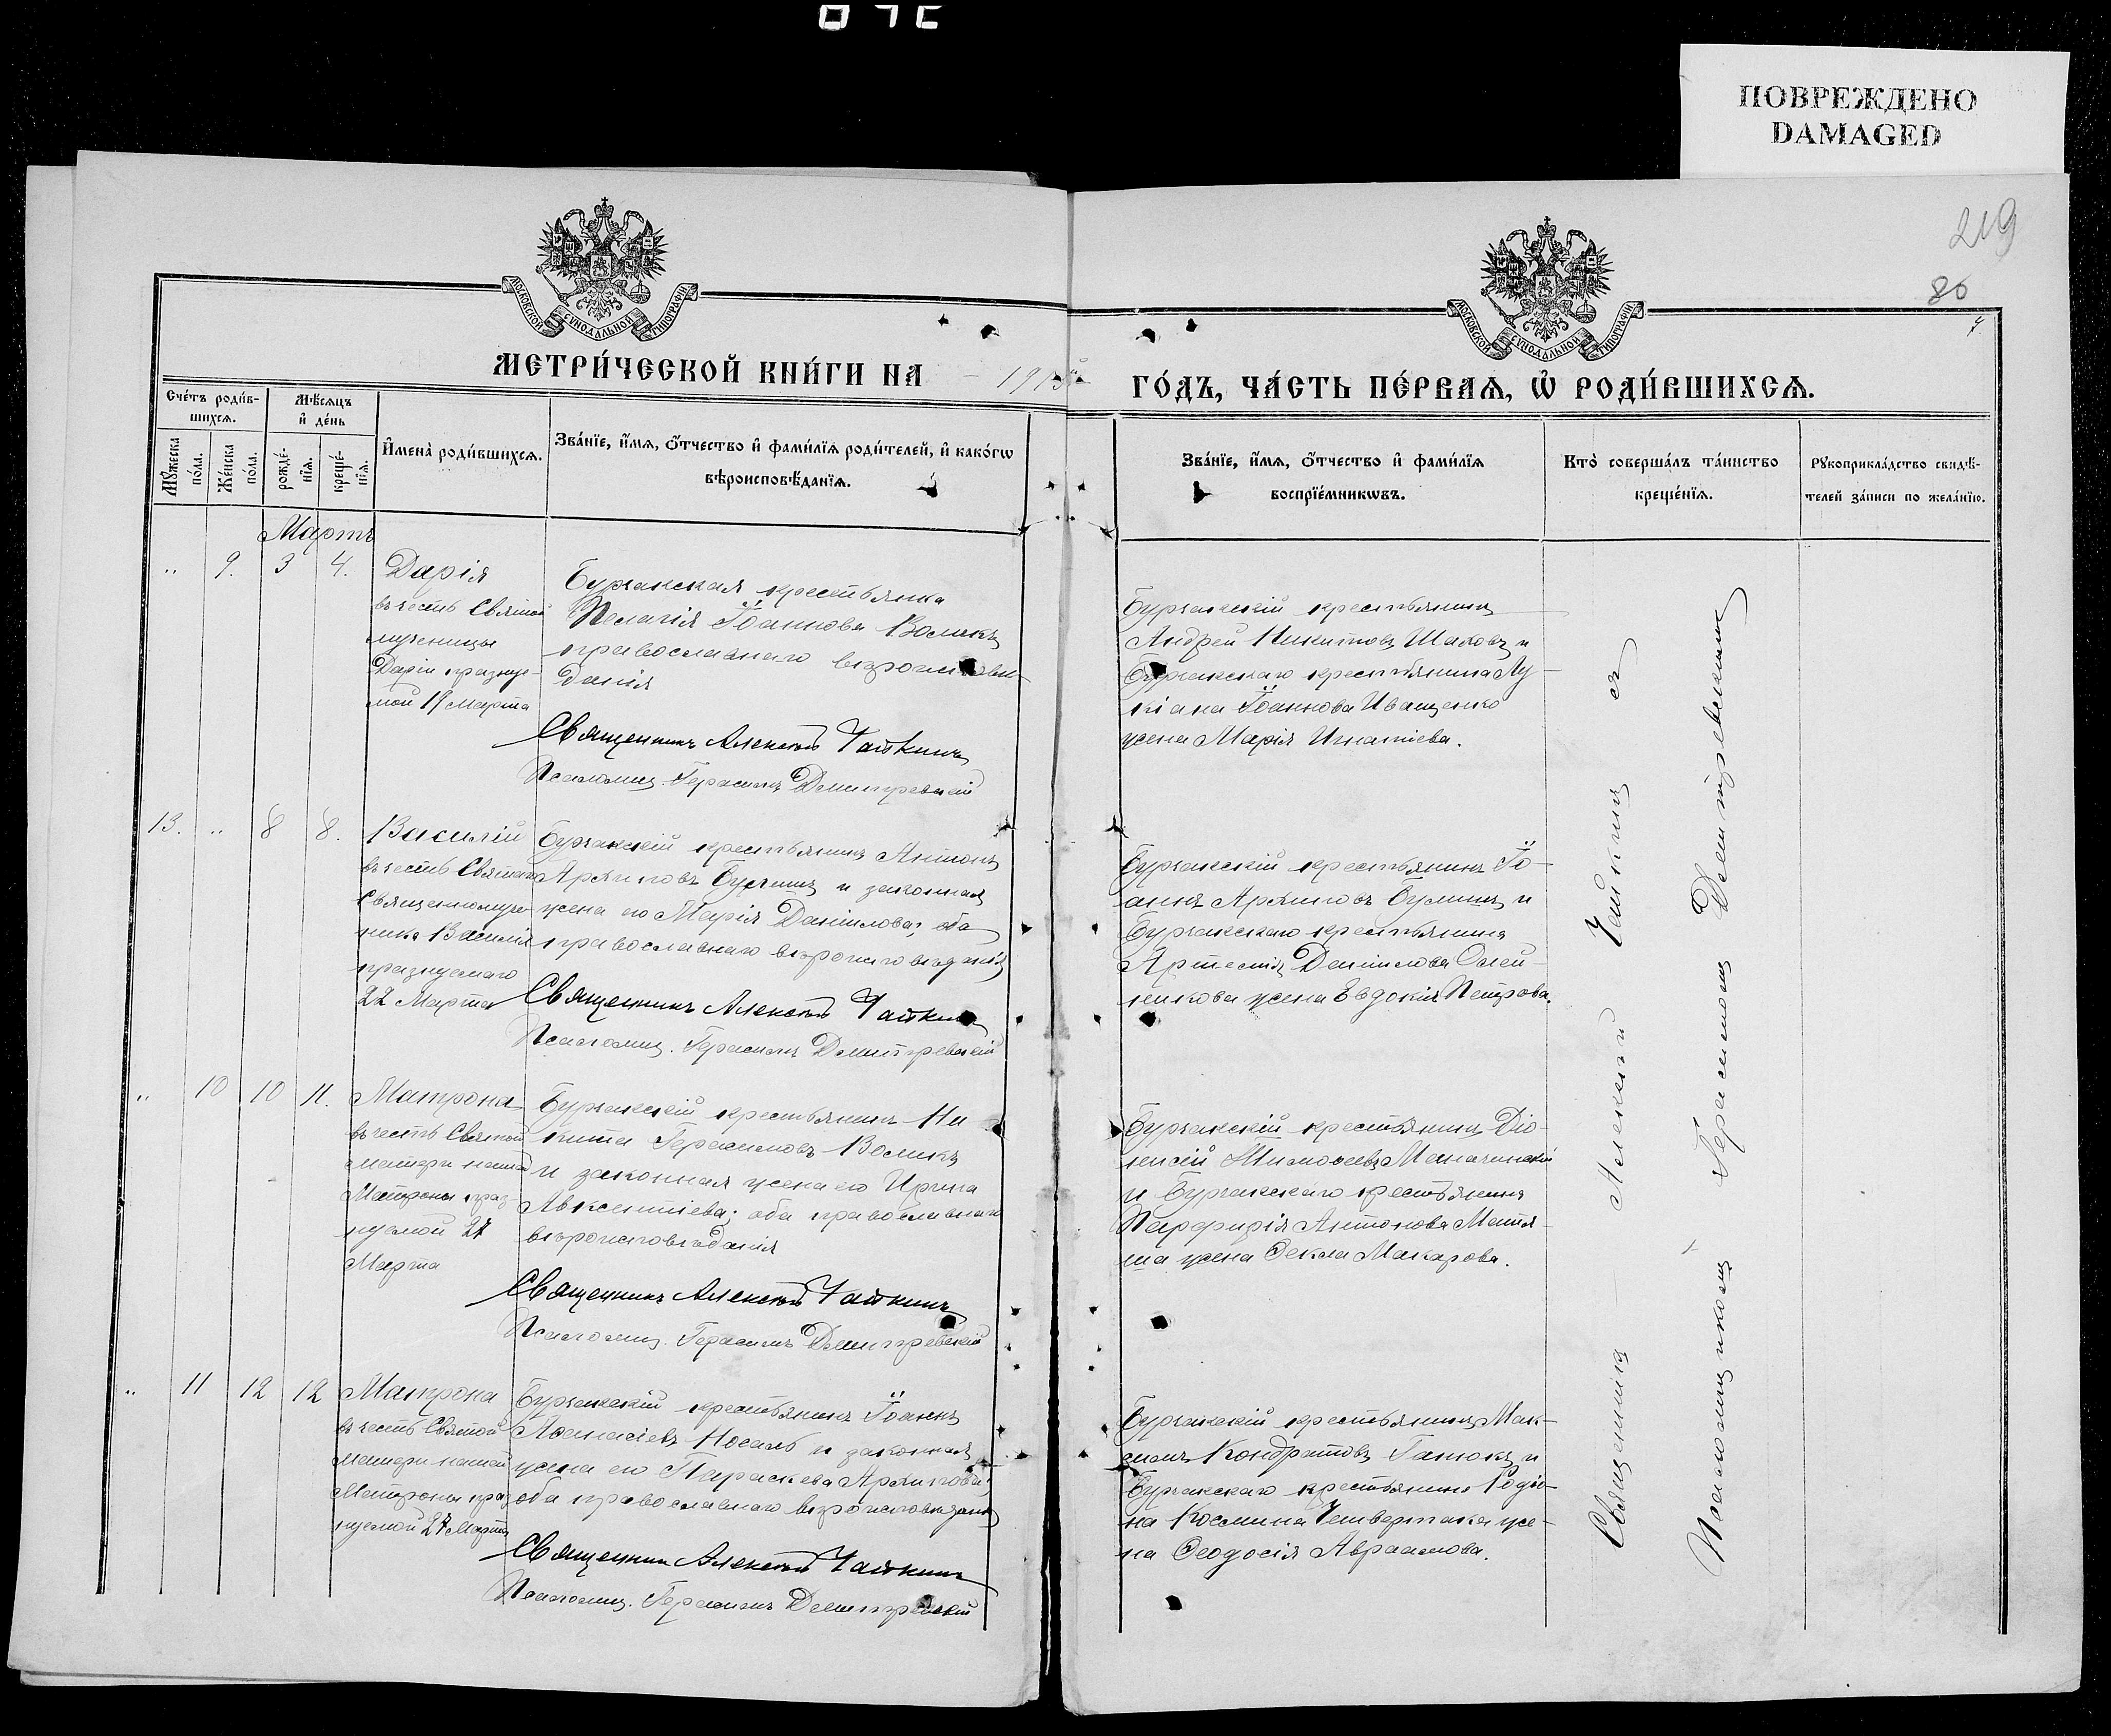 ПОВРЕЖДЕНО
DAMAGED
219
80
МОСКОВСКОЙ СУНОДАЛЬНОЙ ТИПОГРАФІИ
МОСКОВСКОЙ СУНОДАЛЬНОЙ ТИПОГРАФІИ
МЕТРИ́ЧЕСКОЙ КНИ́ГИ НА 1915
ГО́ДЪ, ЧА́СТЬ ПЕ́РВАѦ, Ѡ҆ РОДИ́ВШИХСѦ.
Сче́тъ роди́в-
шихсѧ.
Мѣ́сѧцъ
и҆ де́нь
Мꙋ́жеска
по́ла.
Же́нска
по́ла.
рожде́-
нїѧ.
креще́-
нїѧ.
И҆мена̀ роди́вшихсѧ.
Зва́нїе, и҆́мѧ, ѻ҆́тчество и҆ фами́лїѧ роди́телей, и҆ како́гѡ
вѣроисповѣ́данїѧ.
Зва́нїе, и҆́мѧ, ѻ҆́тчество и҆ фами́лїѧ
воспрїе́мникѡвъ.
Кто̀ соверша́лъ та́инство
креще́нїѧ.
Рꙋкоприкла́дство свидѣ́-
телей за́писи по жела́нїю.
Мартъ
„ 9. 3 4.
Дарія
въ честь Святой
мученицы
Даріи празнуе-
мой 19 Марта
Бурчакская крестьянка
Пелагія Іоаннова Воликъ
православнаго вѣроисповѣ-
данія
Священникъ Алексій Чайкинъ
Псаломщ. Герасимъ Димитревскій
Бурчакскій крестьянинъ
Андрей Никитовъ Шаховъ и
Бурчакскаго крестьянина Лу-
кіана Іоаннова Иващенко
жена Марія Игнатіева.
13. „ 8 8.
Василій
въ честь Святаго
Священномуче-
ника Василія
празнуемаго
22 Марта
Бурчакскій крестьянинъ Антонъ
Архиповъ и законная
жена его Марія Даніилова; оба
православнаго вѣроисповѣданія
Священникъ Алексій Чайкинъ
Псаломщ. Герасимъ Димитревскій
Бурчакскій крестьянинъ Іо-
аннъ Архиповъ и
Бурчакскаго крестьянина
Артемія Даніилова Олей-
никова жена Евдокія Петрова.
„ 10 10 11.
Матрона
въ честь Святой
матери нашей
Матроны праз-
нуемой 27
Марта
Бурчакскій крестьянинъ Ни-
кита Герасимовъ Воликъ
и законная жена его Ирина
Авксентіева; оба православнаго
вѣроисповѣданія
Священникъ Алексій Чайкинъ
Псаломщ. Герасимъ Димитревскій
Бурчакскій крестьянинъ Діо-
нисій Тимофеевъ
и Бурчакскаго крестьянина
Парфирія Антонова Матя-
ша жена Ѳекла Макарова.
„ 11 12 12
Матрона
въ честь Святой
матери нашей
Матроны праз-
нуемой 27 Марта
Бурчакскій крестьянинъ Іоаннъ
Аѳанасіевъ Носаль и законная
жена его Параскева Архипова;
оба православнаго вѣроисповѣданія
Священникъ Алексій Чайкинъ
Псаломщ. Герасимъ Димитревскій
Бурчакскій крестьянинъ Мак-
симъ Кондратовъ и
Бурчакскаго крестьянина Родіо-
на Космина Четвертака же-
на Ѳеодосія Авраамова.
Священникъ Алексій Чайкинъ съ
Псаломщикомъ Герасимомъ Димитревскимъ